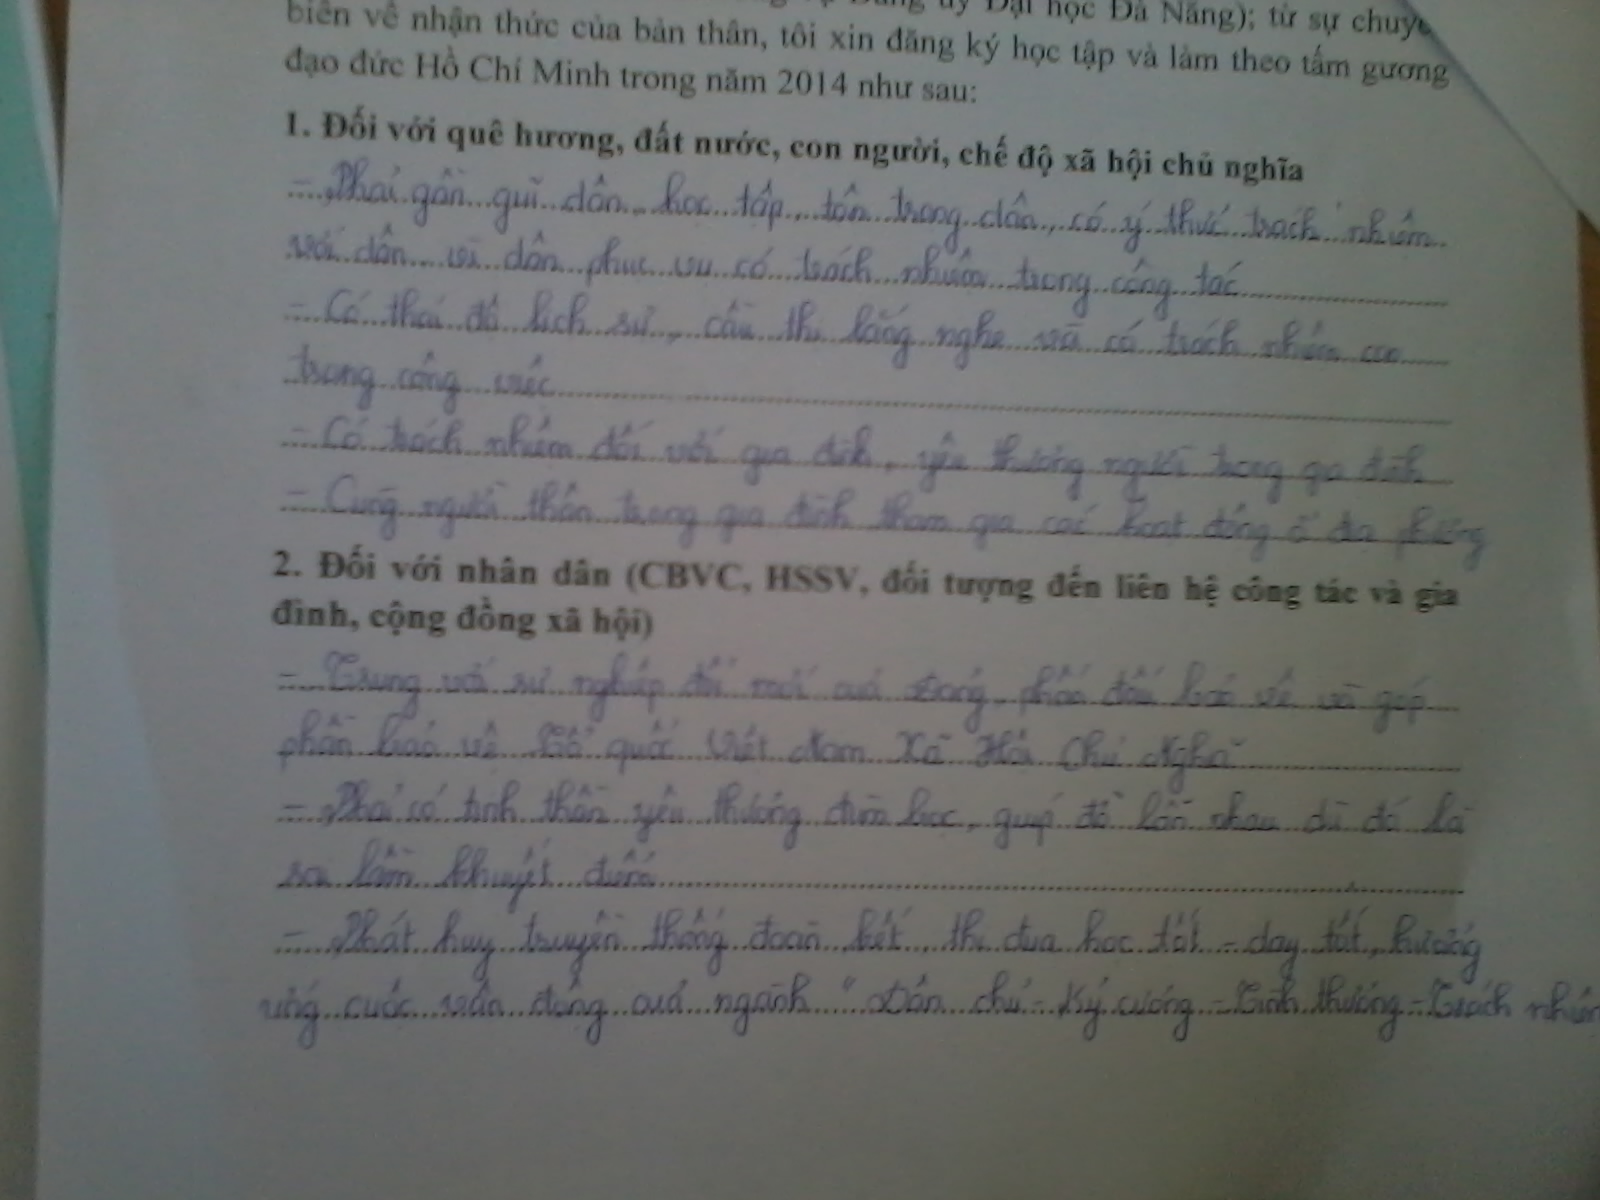 Đảng ủy Đại học Đà Nẵng); từ sự chuyển
biến về nhận thức của bản thân, tôi xin đăng ký học tập và làm theo tấm gương
đạo đức Hồ Chí Minh trong năm 2014 như sau:
1. Đối với quê hương, đất nước, con người, chế độ xã hội chủ nghĩa
- Phải gần gũi dân, học tập, tôn trọng dân, có ý thức trách nhiệm
với dân, vì dân phục vụ có trách nhiệm trong công tác
- Có thái độ lịch sử, cầu thị lắng nghe và có trách nhiệm cao
trong công việc
- Có trách nhiệm đối với gia đình, yêu thương người trong gia đình
- Cùng người thân trong gia đình tham gia các hoạt động ở địa phương
2. Đối với nhân dân (CBVC, HSSV, đối tượng đến liên hệ công tác và gia
đình, cộng đồng xã hội)
- Trung với sự nghiệp đổi mới của Đảng, phấn đấu bảo vệ và góp
phần bảo vệ Tổ quốc Việt Nam Xã Hội Chủ Nghĩa
- Phải có tinh thần yêu thương đùm bọc, giúp đỡ lẫn nhau dù đó là
sai lầm khuyết điểm
- Phát huy truyền thống đoàn kết, thi đua học tốt - dạy tốt, hưởng
ứng cuộc vận động của ngành "Dân chủ - Kỷ cương - Tình thương - Trách nhiệm